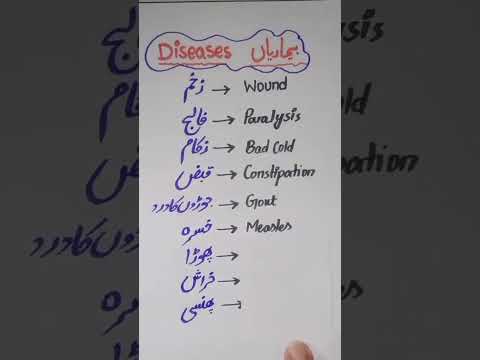 Diseases بیماریاں
زخم → Wound
فالج → Paralysis
زکام → Bad Cold
قبض → Constipation
جوڑوں کا درد → Gout
خسرہ → Measles
پھوڑا →
خراش →
پھنسی →